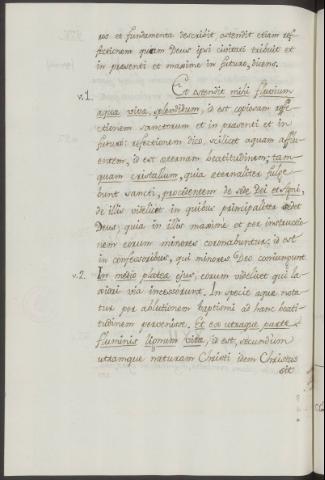 res et fundamenta describit, ostendit etiam ref-
fectionem quam Deus ipsi civitati tribuit et
in presenti et maxime in futuro, dicens.
Et ostendit mihi fluvium
v. 1.
aqua viva, splendidum, id est copiosam reffe-
ctionem sanctorum et in presenti et in
futuro: refectionem dico, scilicet aquam afflu-
entem, id est æternam beatitudinem; tan-
quam cristallum, quia æternaliter fulge-
bunt sancti, procedentem de sede Dei et Agni,
de illis videlicet in quibus principaliter sedet
Deus, quia in illis maxime et per instructio-
nem eorum minores coronabuntur, id est
in confessoribus, qui minores Deo coniungunt
v. 2.
In medio platea ejus, eorum videlicet qui la-
via incesserunt. In specie aqua nota-
tur per ablutionem baptismi ad hanc beati-
tudinem pervenire. Et ex utraque parte
fluminis lignum vita, id est, secundum
utramque naturam Christi idem Christus
sit